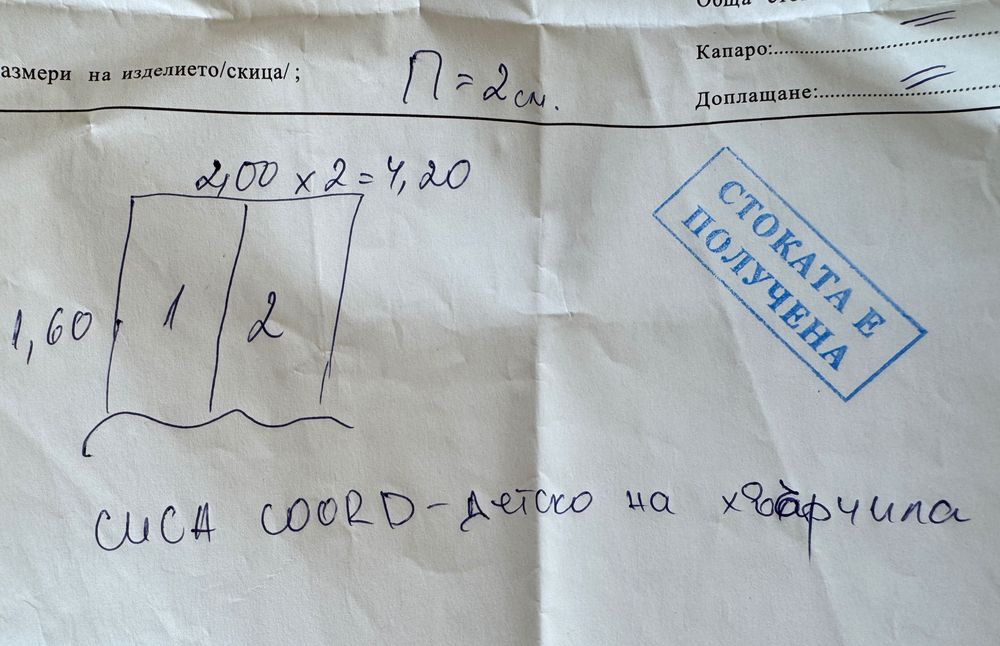 Обща
Капаро:
азмери на изделието/скица/ ;
П = 2 см.
Доплащане:
2,00 x 2 = 4,20
1,60
1
2
СТОКАТА Е
ПОЛУЧЕНА
СИСА COORD - детско на хвърчила